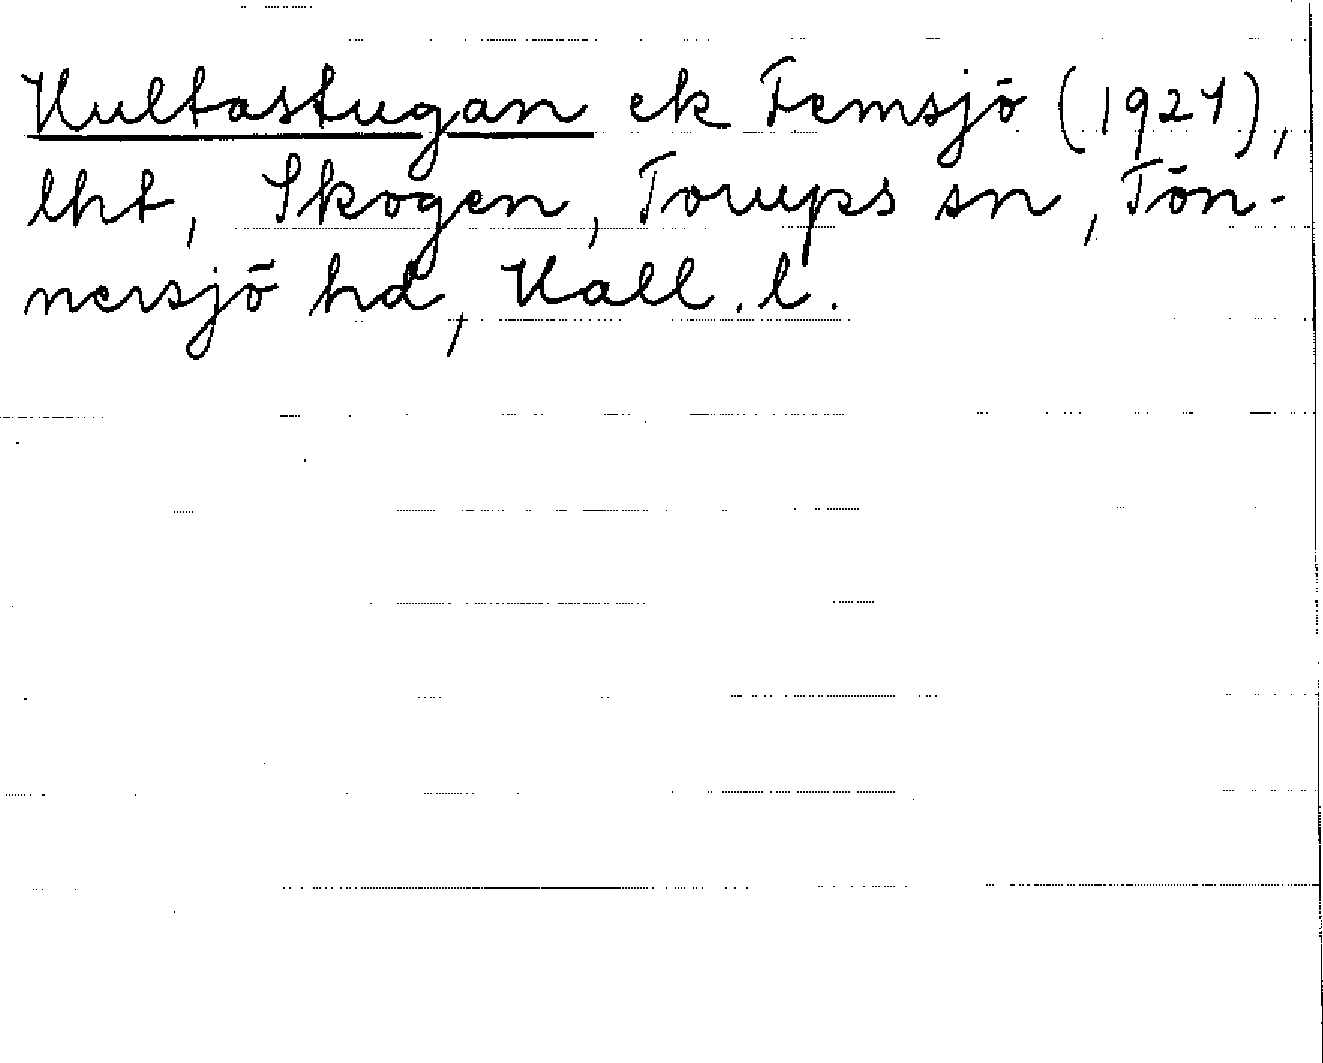 Hultastugan ek Femsjö (1927),
lht, Skogen, Torups sn, Tön-
nersjö hd, Hall. l.